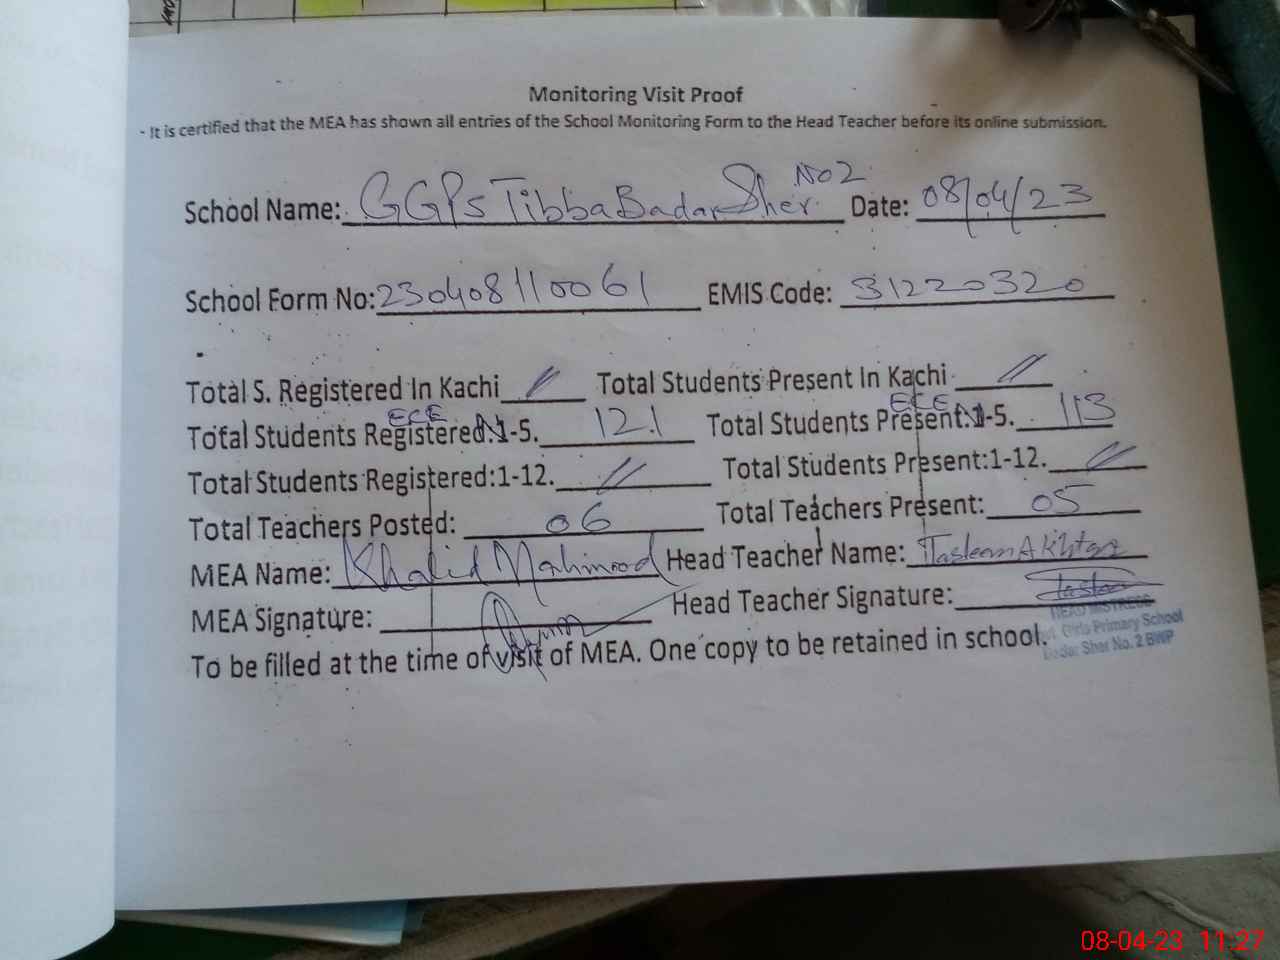 Monitoring Visit Proof
- It is certified that the MEA has shown all entries of the School Monitoring Form to the Head Teacher before its online submission.
School Name: GGPs Tibba Badar Sher No2 Date: 08/04/23
School Form No: 230408110061 EMIS Code: 31220320
Total S. Registered In Kachi // Total Students Present In Kachi //
Total Students Registered:1-5. ECE N 121 Total Students Present:1-5. ECE N 113
Total Students Registered:1-12. // Total Students Present:1-12. //
Total Teachers Posted: 06 Total Teachers Present: 05
MEA Name: Khalid Mahmood Head Teacher Name: Tasleem Akhtar
MEA Signature: Head Teacher Signature:
HEAD MISTRESS
Girls Primary School
Badar Sher No. 2 BWP
To be filled at the time of visit of MEA. One copy to be retained in school.
08-04-23 11:27